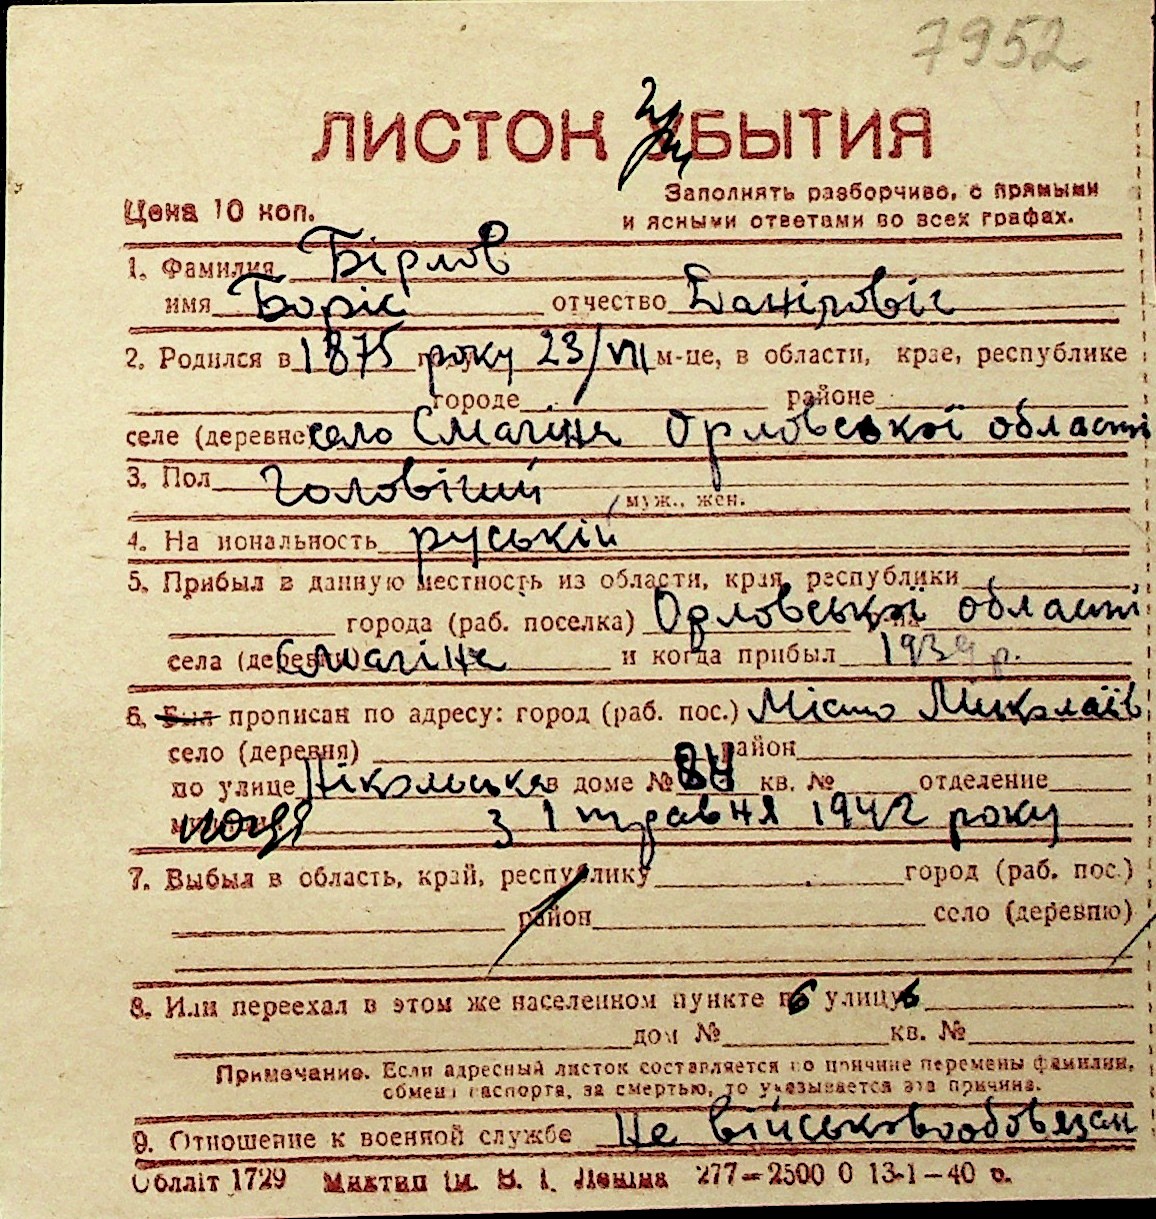 7952
ЛИСТОК При УБЫТИЯ
Цена 10 коп.
Заполнять разборчиво, с прямыми
и ясными ответами во всех графах.
1. Фамилия Бірлов
имя Боріс отчество Даніловіч
2. Родился в 1875 року 23/VII м-це, в области, крае, республике
городе районе
селе (деревне село Смагіне Орловської області
3. Пол Чоловічий муж., жен.
4. На иональность руській
5. Прибыл в данную местность из области, края, республики
города (раб. поселка) Орловської області
села (деревни) Смагіне и когда прибыл 1939 р.
6. Был прописан по адресу: город (раб. пос.) Місто Миколаїв
село (деревня) район
по улице Нікольська в доме № 84 кв. № отделение
з 1 травня 1942 року
7. Выбыл в область, край, республику город (раб. пос.)
район село (деревню)
8. Или переехал в этом же населенном пункте улицу
дом № кв. №
Примечание. Если адресный листок составляется по причине перемены фамилии,
обмена паспорта, за смертью, то указывается эта причина.
9. Отношение к военной службе Не військовообовязан
Облліт 1729 Миктип ім. В. І. Леніна 277—2500 0 13-1—40 р.